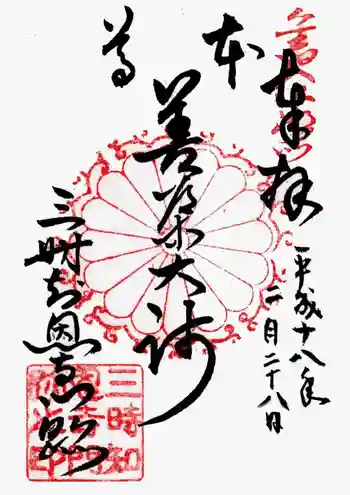 奉拝
平成十八年
二月二十八日
本尊
善導大師
三時知恩寺
三時知
恩寺門
跡之印